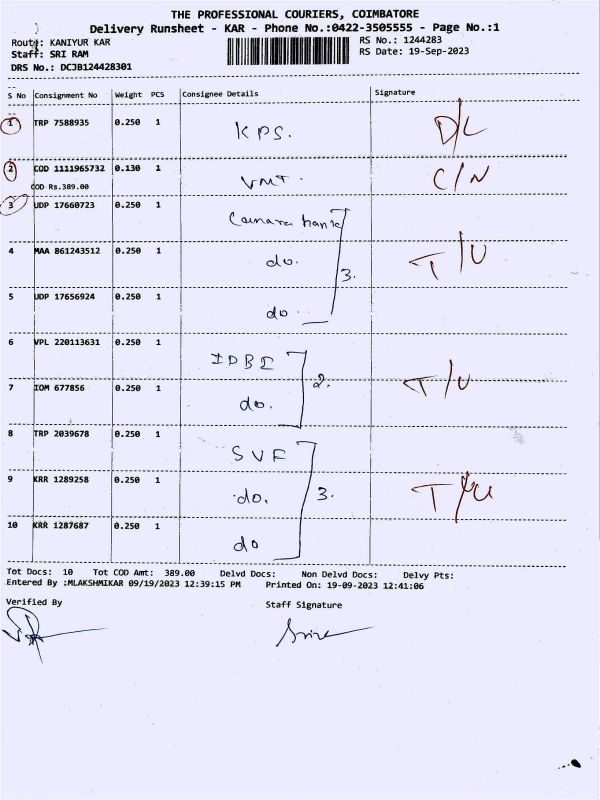 THE PROFESSIONAL COURIERS, COIMBATORE
Delivery Runsheet - KAR - Phone No.:0422-3505555 - Page No.:1
Route: KANIYUR KAR RS No.: 1244283
Staff: SRI RAM RS Date: 19-Sep-2023
DRS No.: DCJB124428301
S No Consignment No Weight PCS Consignee Details Signature
1 TRP 7588935 0.250 1 KPS. D/L
2 COD 1111965732 0.130 1 VMT. C/N
COD Rs.389.00
3 UDP 17660723 0.250 1 Canara bank
4 MAA 861243512 0.250 1 do. 3. T/U
5 UDP 17656924 0.250 1 do.
6 VPL 220113631 0.250 1 IDBI
7 IOM 677856 0.250 1 do. 2. T/U
8 TRP 2039678 0.250 1 SVF
9 KRR 1289258 0.250 1 do. 3. T/U
10 KRR 1287687 0.250 1 do
Tot Docs: 10 Tot COD Amt: 389.00 Delvd Docs: Non Delvd Docs: Delvy Pts:
Entered By :MLAKSHMIKAR 09/19/2023 12:39:15 PM Printed On: 19-09-2023 12:41:06
Verified By Staff Signature